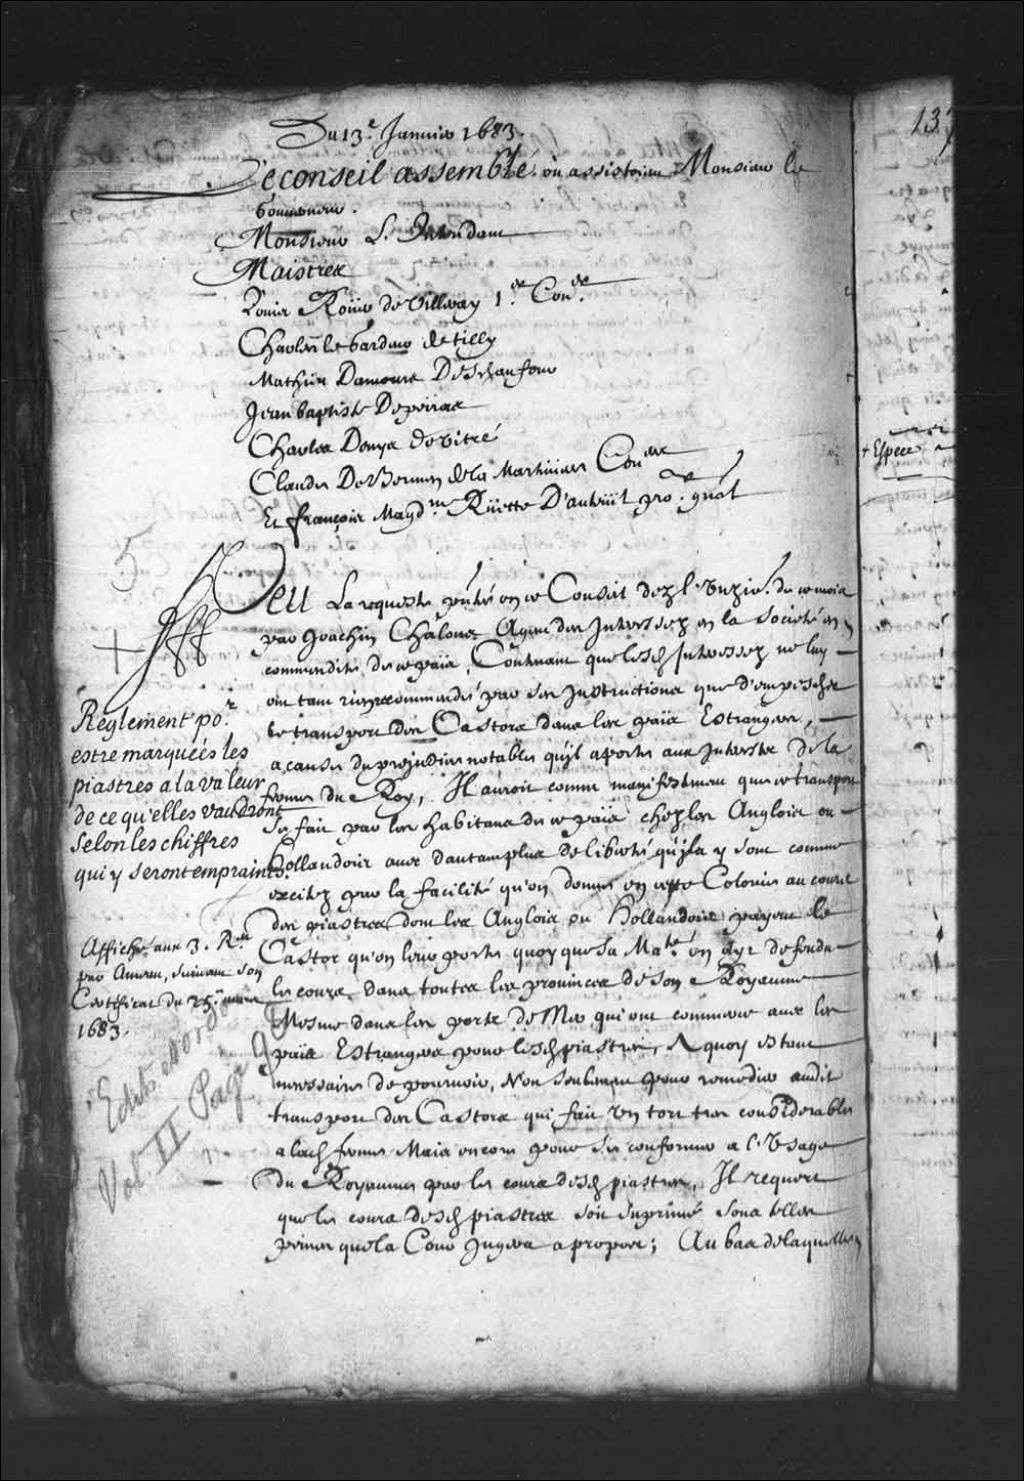 Du 13.e Januier 1683.
Le conseil assemblé. ou assistoient Monsieur le
Gouuerneur.
Monsieur L'Intendant
Maistres
Louis Roüer de Villeray 1.er Con.er
Charles le Gardeur de tilly
Mathieu Damours Deschaufour
Jean baptiste Depeiras
Charles Denys de Vitré
Claude De Bermen de la Martiniere Con.ers
Et françois Magd.ne Rüette D'auteüil pro. gnal
5
Veu La requeste pntée en ce Conseil dez l'Vnzie. de ce mois
par Joachin Châlons Agent des Interessez en la Societé en
commendite de ce païs, Contenant que lesd. Interessez ne luy
ont tant rien recommendé par ses Instructions que d'empescher
le transport des Castors dans les païs Estrangers,
a cause du prejudice notable qu'il aporte aux Interests de la
ferme du Roy, Il auroit connu manifestement que ce transport
se fait par les habitans de ce païs chez les Anglois ou
hollandois auec d'autant plus de liberté qu'ils y sont comme
excitez par la facilité qu'on donne en cette Colonie au cours
des piastres dont les Anglois ou hollandois payent le
Castor qu'on leur porte quoy que Sa Ma.té en ayt defendu
le cours dans toutes les prouinces de son Royaume
Mesme dans les ports de Mer qui ont commerce auec les
païs Estrangers pour lesd. piastres, A quoy estant
necessaire de pouruoir, Non seulement pour remedier audit
transport des Castors qui fait vn tort tres considerable
a lad. ferme Mais encore pour se conformer a l'Vsage
du Royaume par le cours desd. piastres, Il requert
que le cours desd. piastres soit suprimé sous telles
peines que la Cour Jugera a propos; Au bas de laquelle
+
Reglement po.r
estre marqueés les
piastres a la valeur
de ce qu'elles vaudront
selon les chiffres
qui y seront empraints.
Affiché aux 3. R.
par Ameau, suiuant son
Certificat du 25.e mars
1683.
Edits et ord
Vol. II Page 90
137
+ Espece